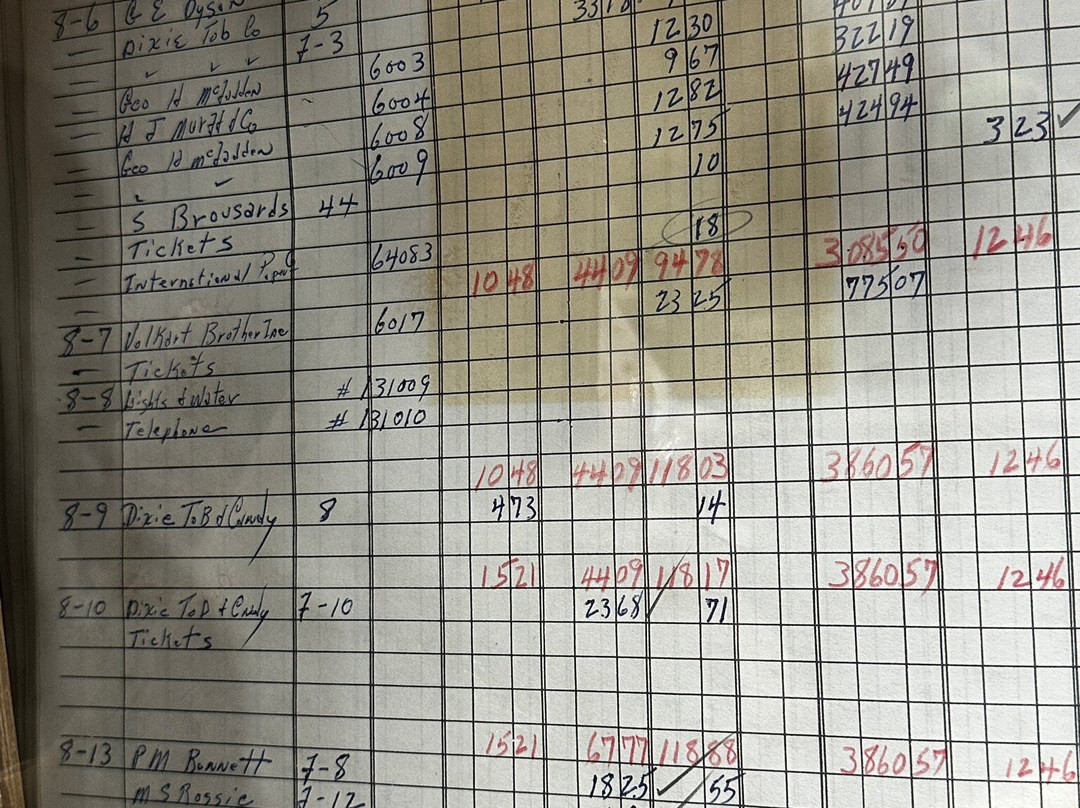 8-6 G E Dyson 5
— Dixie Tob Co 7-3 12 30 322 19
— ✓ ✓ ✓ 6003 9 67 427 49
— Geo H McFadden - 6004 12 82 424 94
— H J Murff & Co 6008 12 75 3 23 ✓
— Geo H McFadden 6009 10
— ✓
— S Brousards 44 18
— Tickets 10 48 44 09 94 78 3085 50 12 46
— International 64083 23 25 775 07
8-7 Volkart Brother Inc 6017
— Tickets
8-8 Lights & Water # 131009
— Telephone # 131010
10 48 44 09 118 03 3860 57 12 46
8-9 Dixie Tob & Candy 8 4 73 14
15 21 44 09 118 17 3860 57 12 46
8-10 Dixie Tob & Candy 7-10 23 68 ✓ 71
Tickets
15 21 67 77 118 88 3860 57 12 46
8-13 P M Bunnett 7-8 18 25 ✓ 55
M S Rossie 7-12